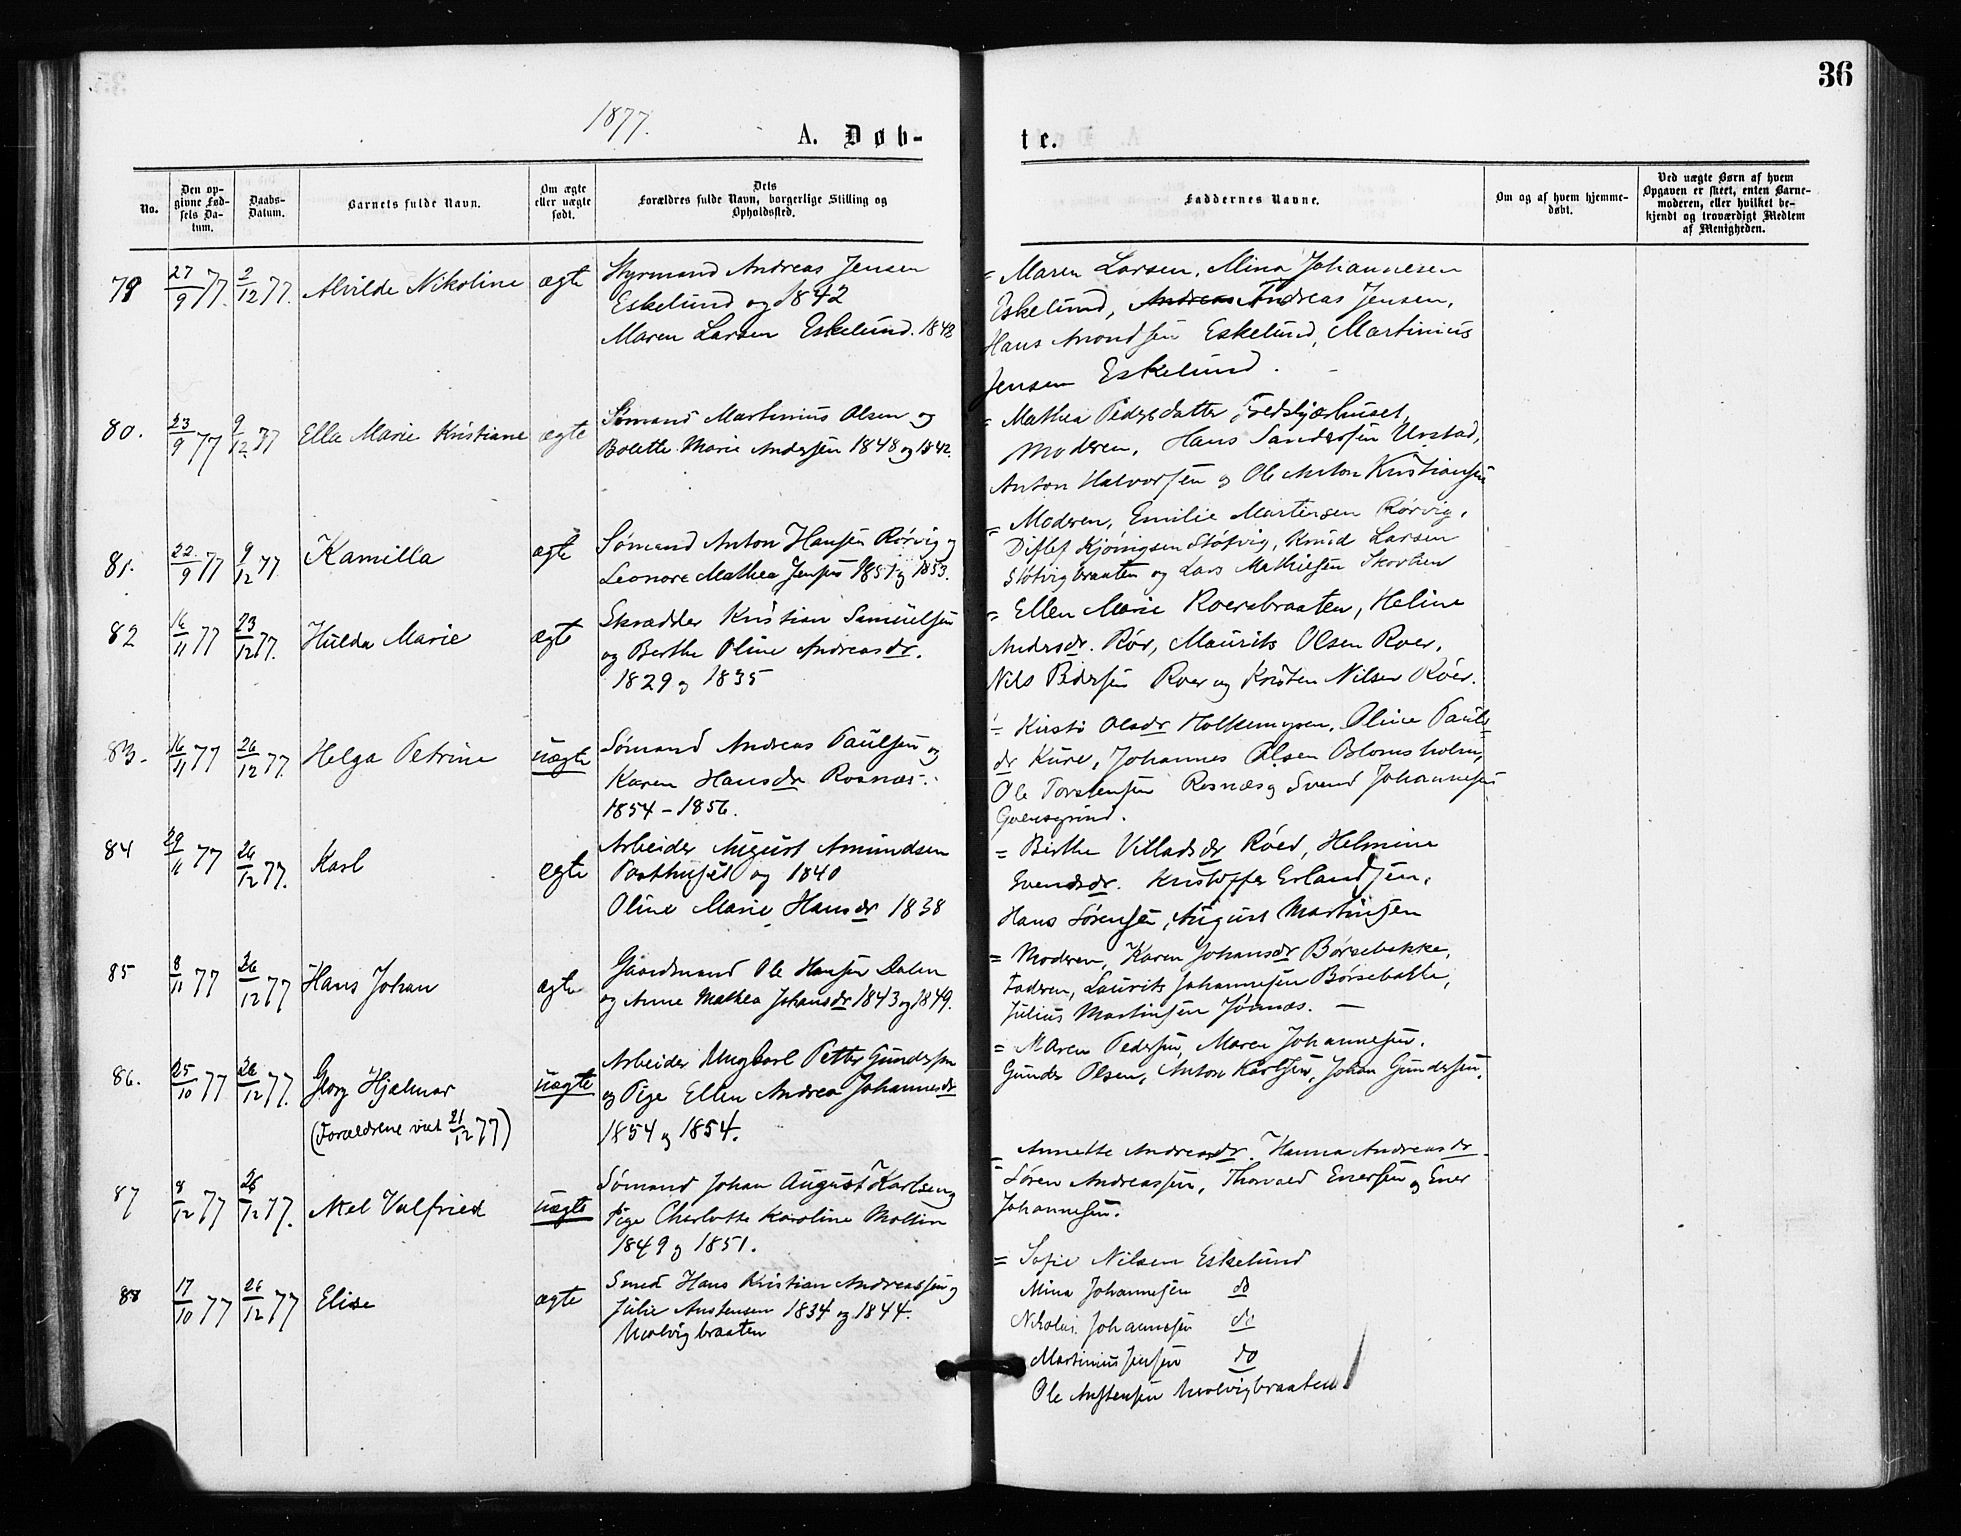 36
1877.
A. Døb-
te.
No.
Den op-
givne Fød-
sels Da-
tum.
Daabs-
Datum.
Barnets fulde Navn.
Om ægte
eller uægte
født.
Dets
Forældres fulde Navn, borgerlige Stilling og
Opholdssted.
Faddernes Navne.
Om og af hvem hjemme-
døbt.
Ved uægte Børn af hvem
Opgaven er skeet, enten Barne-
moderen, eller hvilket be-
kjendt og troværdigt Medlem
af Menigheden.
79 27/9 77. 2/12 77. Alvilde Nikoline ægte Styrmand Andreas Jensen
Eskelund og 1842
Maren Larsen Eskelund. 1848
= Maren Larsen, Mina Johannesen
Eskelund, Andreas Andreas Jensen,
Hans Amondsen Eskelund, Martinius
Jensen Eskelund.
80. 23/9 77 9/12 77 Ella Marie Kristiane ægte Sømand Martinius Olsen og
Bolette Marie Andersen 1848 og 1842.
= Mathea Pedersdatter Fredskjærhuset,
Moderen, Hans Sandersen Urstad,
Anton Halvorsen og Ole Anton Kristiansen
81. 22/9 77 9/12 77 Kamilla ægte Sømand Anton Hansen Rørvig og
Leonore Mathea Jensen 1851 og 1853.
= Moderen, Emilie Martinsen Rørvig,
Ditlef Kjønigsen Støtvig, Knud Larsen
Støtvigbraaten og Lars Mathisen
82 16/11 77 23/12 77. Hulda Marie ægte Skrædder Kristian Samuelsen
og Berthe Oline Andreasdr.
1829 og 1835
= Ellen Marie Roersbraaten, Heline
Andersdr. Rør, Maurits Olsen Roer,
Nils Pedersen Roer og Kristen Nilsen Röer.
83. 16/11 77 26/12 77. Helga Petrine uægte Sømand Andreas Paulsen og
Karen Hansdr Rosnæs.
1854 – 1856.
= Kirsti Olsdr Holkemyren, Oline Pauls
dr Kure, Johannes Olsen Blomsholm,
Ole Torstensen Rosnæs og Svend Johannesen
84 29/11 77 26/12 77. Karl ægte Arbeider August Amundsen
Posthuset og 1840
Oline Marie Hansdr 1838
= Berthe Villadsdr Röed, Helmine
Svendsdr. Kristoffer Erlandsen,
Hans Sørensen, August Martinsen
85 8/11 77 26/12 77 Hans Johan ægte Gaardmand Ole Hansen Dalen
og Anne Mathea Johansdr 1843 og 1849.
= Moderen, Karen Johansdr Børsebakke,
Faderen, Laurits Johannesen Børsebakke,
Julius Martinsen Jønnæs. —
86. 25/10 77 26/12 77. Georg Hjalmar uægte Arbeider Ungkarl Petter Gundersen
(Forældrene viet 21/12 77) og Pige Ellen Andrea Johannesdr
1854 og 1854.
= Maren Pedersen, Maren Johannesen.
Gunder Olsen, Anton Karlsen, Johan Gundersen.
87 8/12 77 26/12 77. Axel Valfried uægte Sømand Johan August Karlsen og
Pige Charlotte Karoline Moltin
1849 og 1851.
= Annette Andreasdr. Hanna Andreasdr.
Søren Andreassen, Thorvald Enersen og Ener
Johannesen.
88 17/10 77 26/12 77 Elise ægte Smed Hans Kristian Andreassen og
Julie Anstensen 1834 og 1844.
Molvigbraaten
= Sofie Nilsen Eskelund
Mina Johannesen do
Nikolai Johannesen do
Martinius Jensen do
Ole Anstensen Molvigbraaten